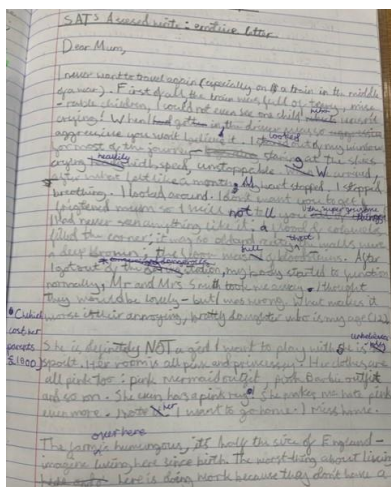 SATs : emotive letter
Dear Mum,
I never want to travel again (especially on a train in the middle
of a war). First of all the train was full of teary, mise
-rable children, I could not even see one child who wasn't
crying! When I got in the driver was so
aggressive you won't believe it. I looked out of my window
for most of the journey staring at the stars
crying with speed, unstoppable. W around,
after what last like 5 months, My heart stopped. I stopped
breathing. I looked around. I don't want you to get a
so I will not tell you
I had never seen anything like it: a cloud of cobwebs
filled the corner; it was so old that the walls were
a deep brown. The was full After
I got out of the station, my body started to function
normally, Mr and Mrs Smith took me away. I thought
they would be lovely - but I was wrong. What makes it
worse is their annoying, bratty daughter who is my age (12).
She is definitely NOT a girl I want to play with. She is
spoilt. Her room is all pink and princessy. Her clothes are
all pink too: pink mermaid outfit, pink Barbie outfit
and so on. She even has a pink rug
(which
cost her
parents
£1,900)
. She makes me hate pink
even more. I hate her. I want to go home. I miss home.
over here
The farm is humongous, it's half the size of England -
imagine living here since birth. The worst thing about living
here is doing work because they don't have a